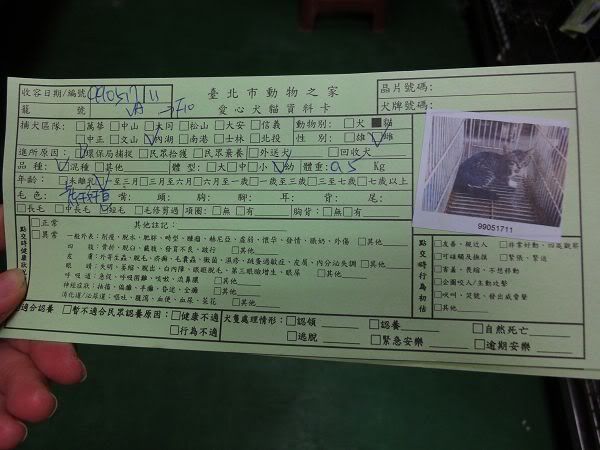 收容日期/編號 99051711 臺北市動物之家 晶片號碼:
籠 號 愛心犬貓資料卡 犬牌號碼:
捕犬區隊: □萬華 □中山 □大同 □松山 □大安 □信義 動物別: □犬 ■貓
□中正 □文山 □內湖 □南港 □士林 □北投 性 別: □雄 □雌
進所原因: □環保局捕捉 □民眾拾獲 □民眾棄養 □外送犬 □回收犬
品 種: □混種 □其他 體 型: □大 □中 □小 □幼 體重: 0.5 Kg
年齡: □未離乳 □至三月 □三月至六月 □六月至一歲 □一歲至三歲 □三歲至七歲 □七歲以上
毛色: 黃: 頭: 胸: 腳: 耳: 背: 尾:
□長毛 □中長毛 □短毛 □毛修剪過 項圈: □無 □有 胸背: □無 □有
99051711
點交時健康狀況
□正常 其他註記:
□異常 一般外表: 削瘦、脫水、肥胖、畸型、腫瘤、赫尼亞、虛弱、懷孕、發情、脹奶、外傷 □其他
四 肢: 骨折、脫臼、截肢、發育不良、跛行 □其他
皮 膚: 外寄生蟲、脫毛、疥癬、毛囊蟲、黴菌、濕疹、跳蚤過敏症、皮屑、內分泌失調 □其他
眼 睛: 失明、萎縮、脫出、白內障、眼瞼脫毛、第三眼瞼增生、眼屎 □其他
呼 吸 道: 急促、呼吸困難、咳嗽、流鼻膿 □其他
神經症狀: 抽搐、偏癱、半癱、昏迷、全癱 □其他
消化道/泌尿道: 嘔吐、腹瀉、血便、血尿、菜花 □其他
點交時行為初估
□友善、親近人 □非常好動、四處觀察
□可碰觸及撫摸 □緊張、緊迫
□害羞、畏縮、不想移動
□企圖咬人/主動攻擊
□吠叫、哭號、發出威脅聲
□其他
適合認養 □暫不適合民眾認養原因: □健康不適 犬隻處理情形: □認領 □認養 □自然死亡
□行為不適 □逃脫 □緊急安樂 □逾期安樂